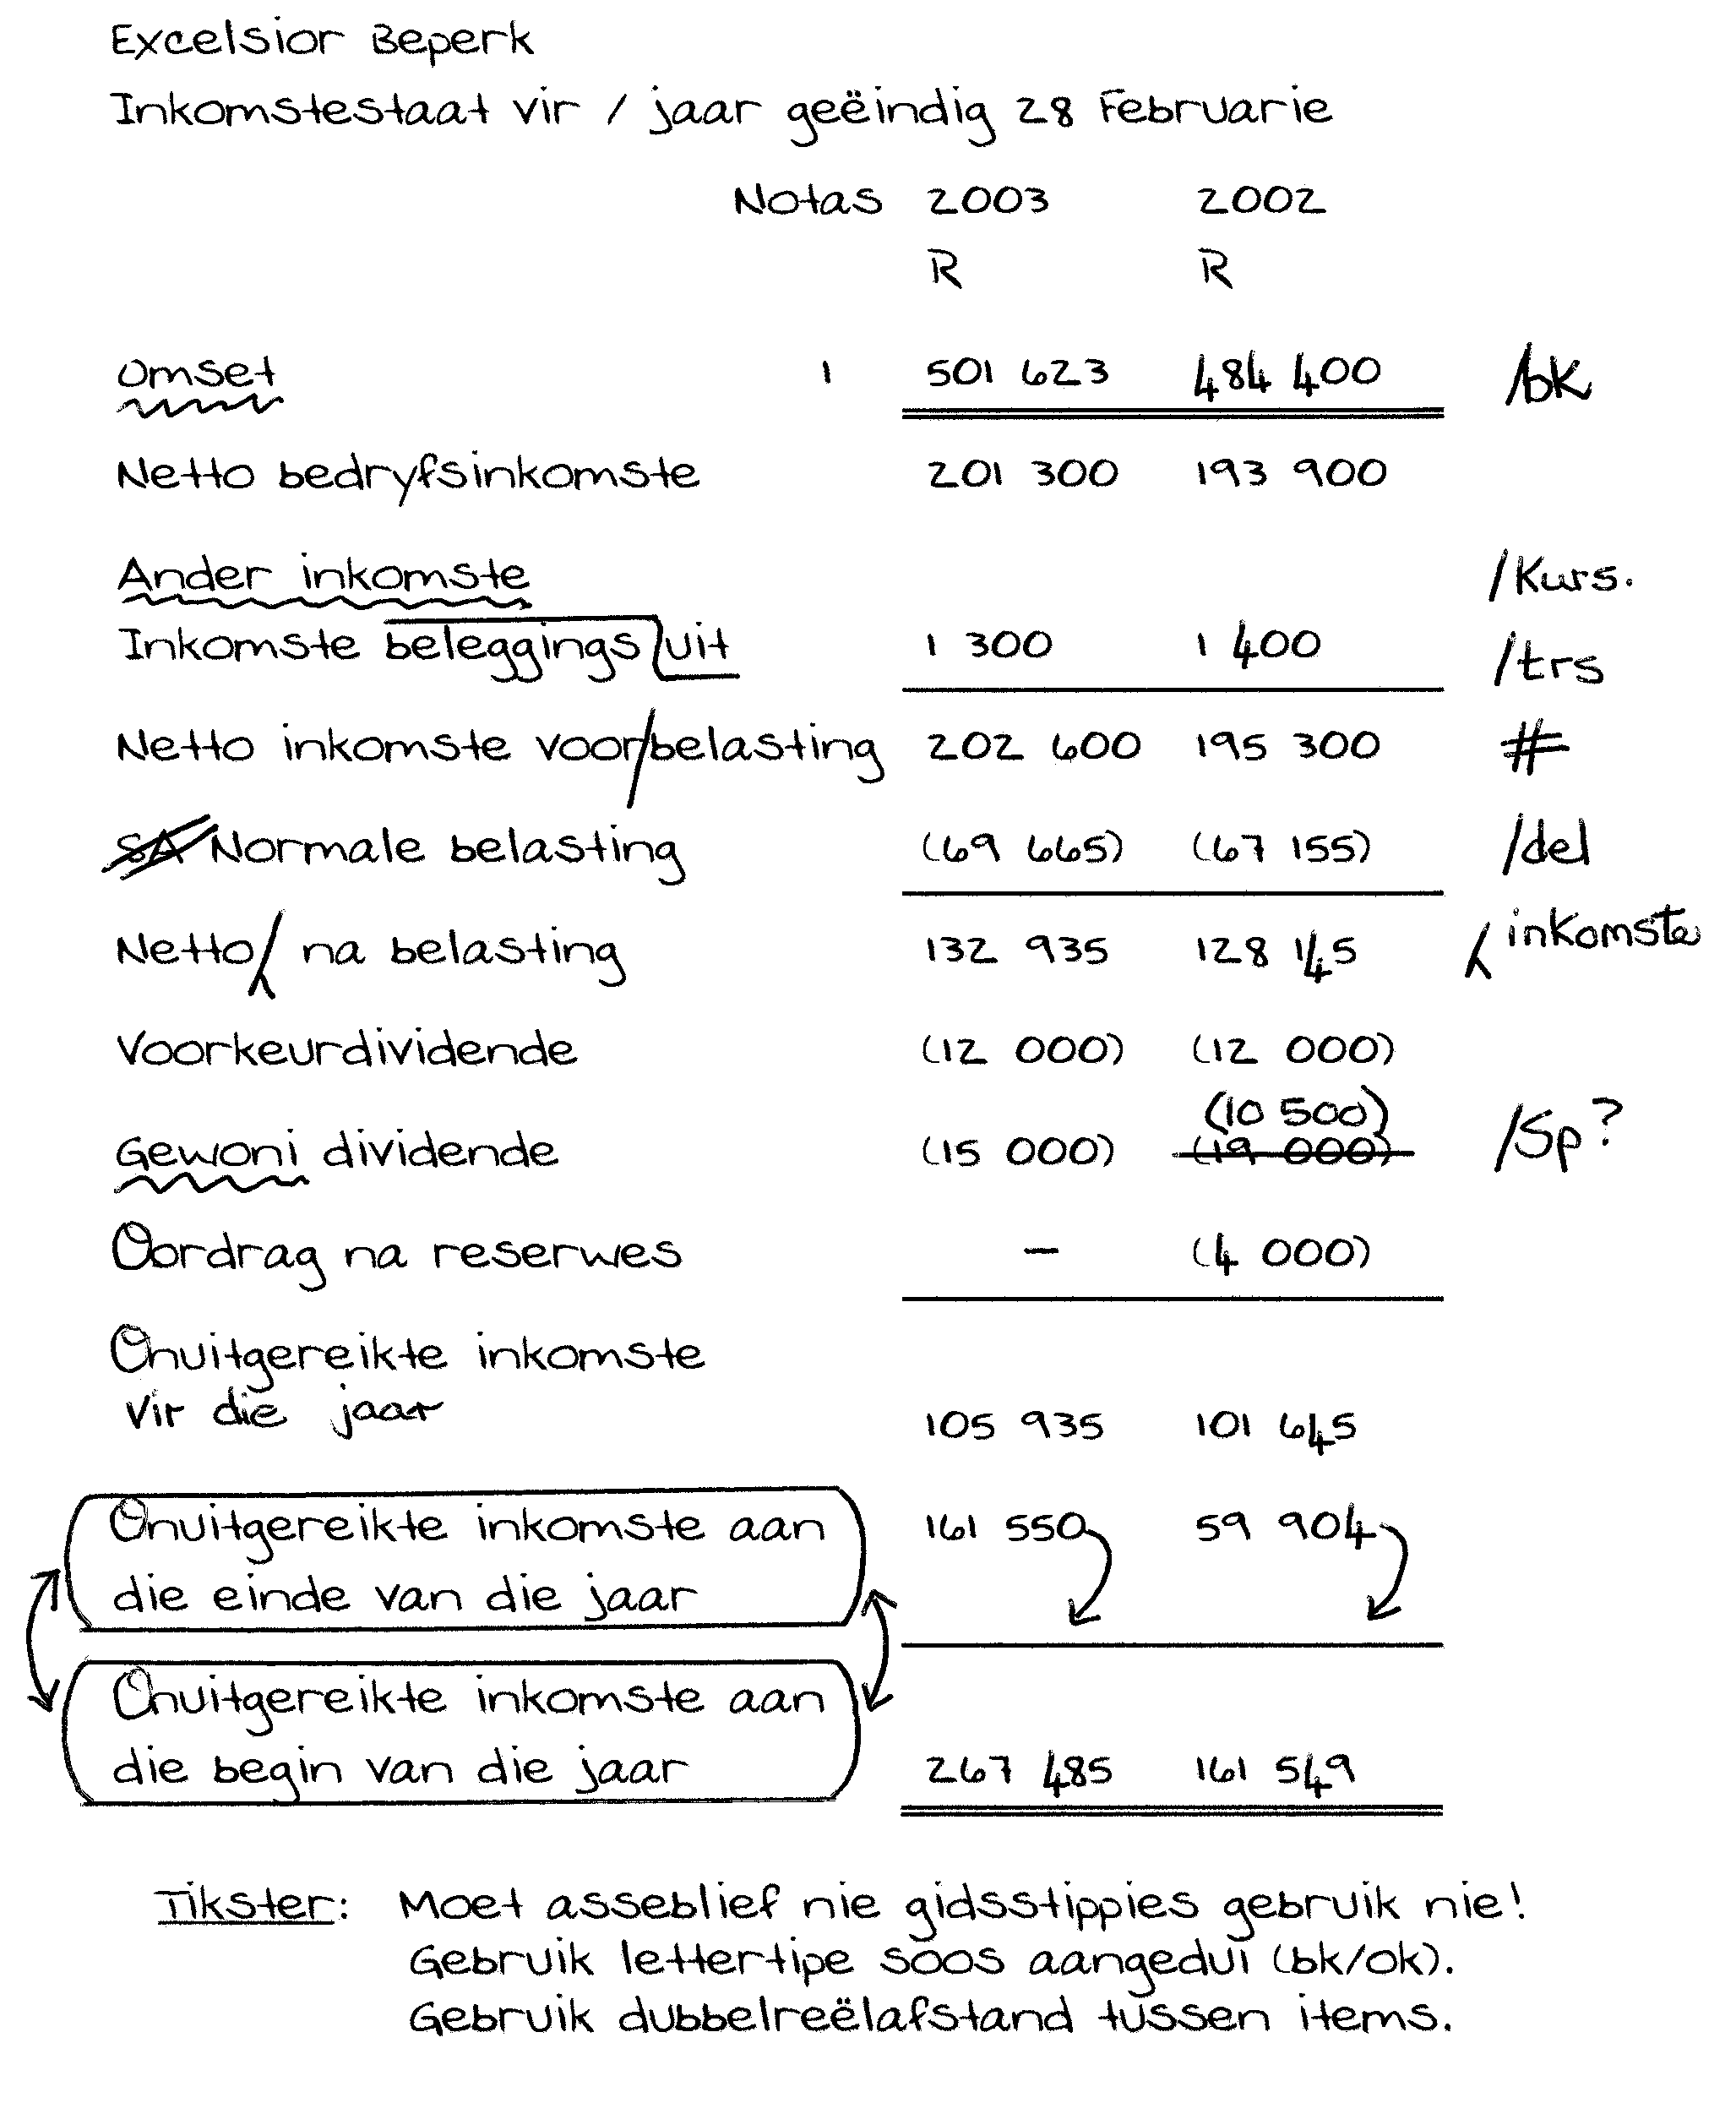 Excelsior Beperk
Inkomstestaat vir / jaar geëindig 28 Februarie
Notas 2003 2002
R R
Omset 1 501 623 484 400 /bk
Netto bedryfsinkomste 201 300 193 900
Ander inkomste /Kurs.
Inkomste beleggings uit 1 300 1 400 /trs
Netto inkomste voor/belasting 202 600 195 300 #
SA Normale belasting (69 665) (67 155) /del
Netto na belasting 132 935 128 145 inkomste
Voorkeurdividende (12 000) (12 000)
(10 500)
Gewoni dividende (15 000) (19 000) /Sp?
Oordrag na reserwes – (4 000)
Onuitgereikte inkomste
vir die jaar 105 935 101 645
Onuitgereikte inkomste aan 161 550 59 904
die einde van die jaar
Onuitgereikte inkomste aan
die begin van die jaar 267 485 161 549
Tikster: Moet asseblief nie gidsstippies gebruik nie!
Gebruik lettertipe soos aangedui (bk/ok).
Gebruik dubbelreëlafstand tussen items.